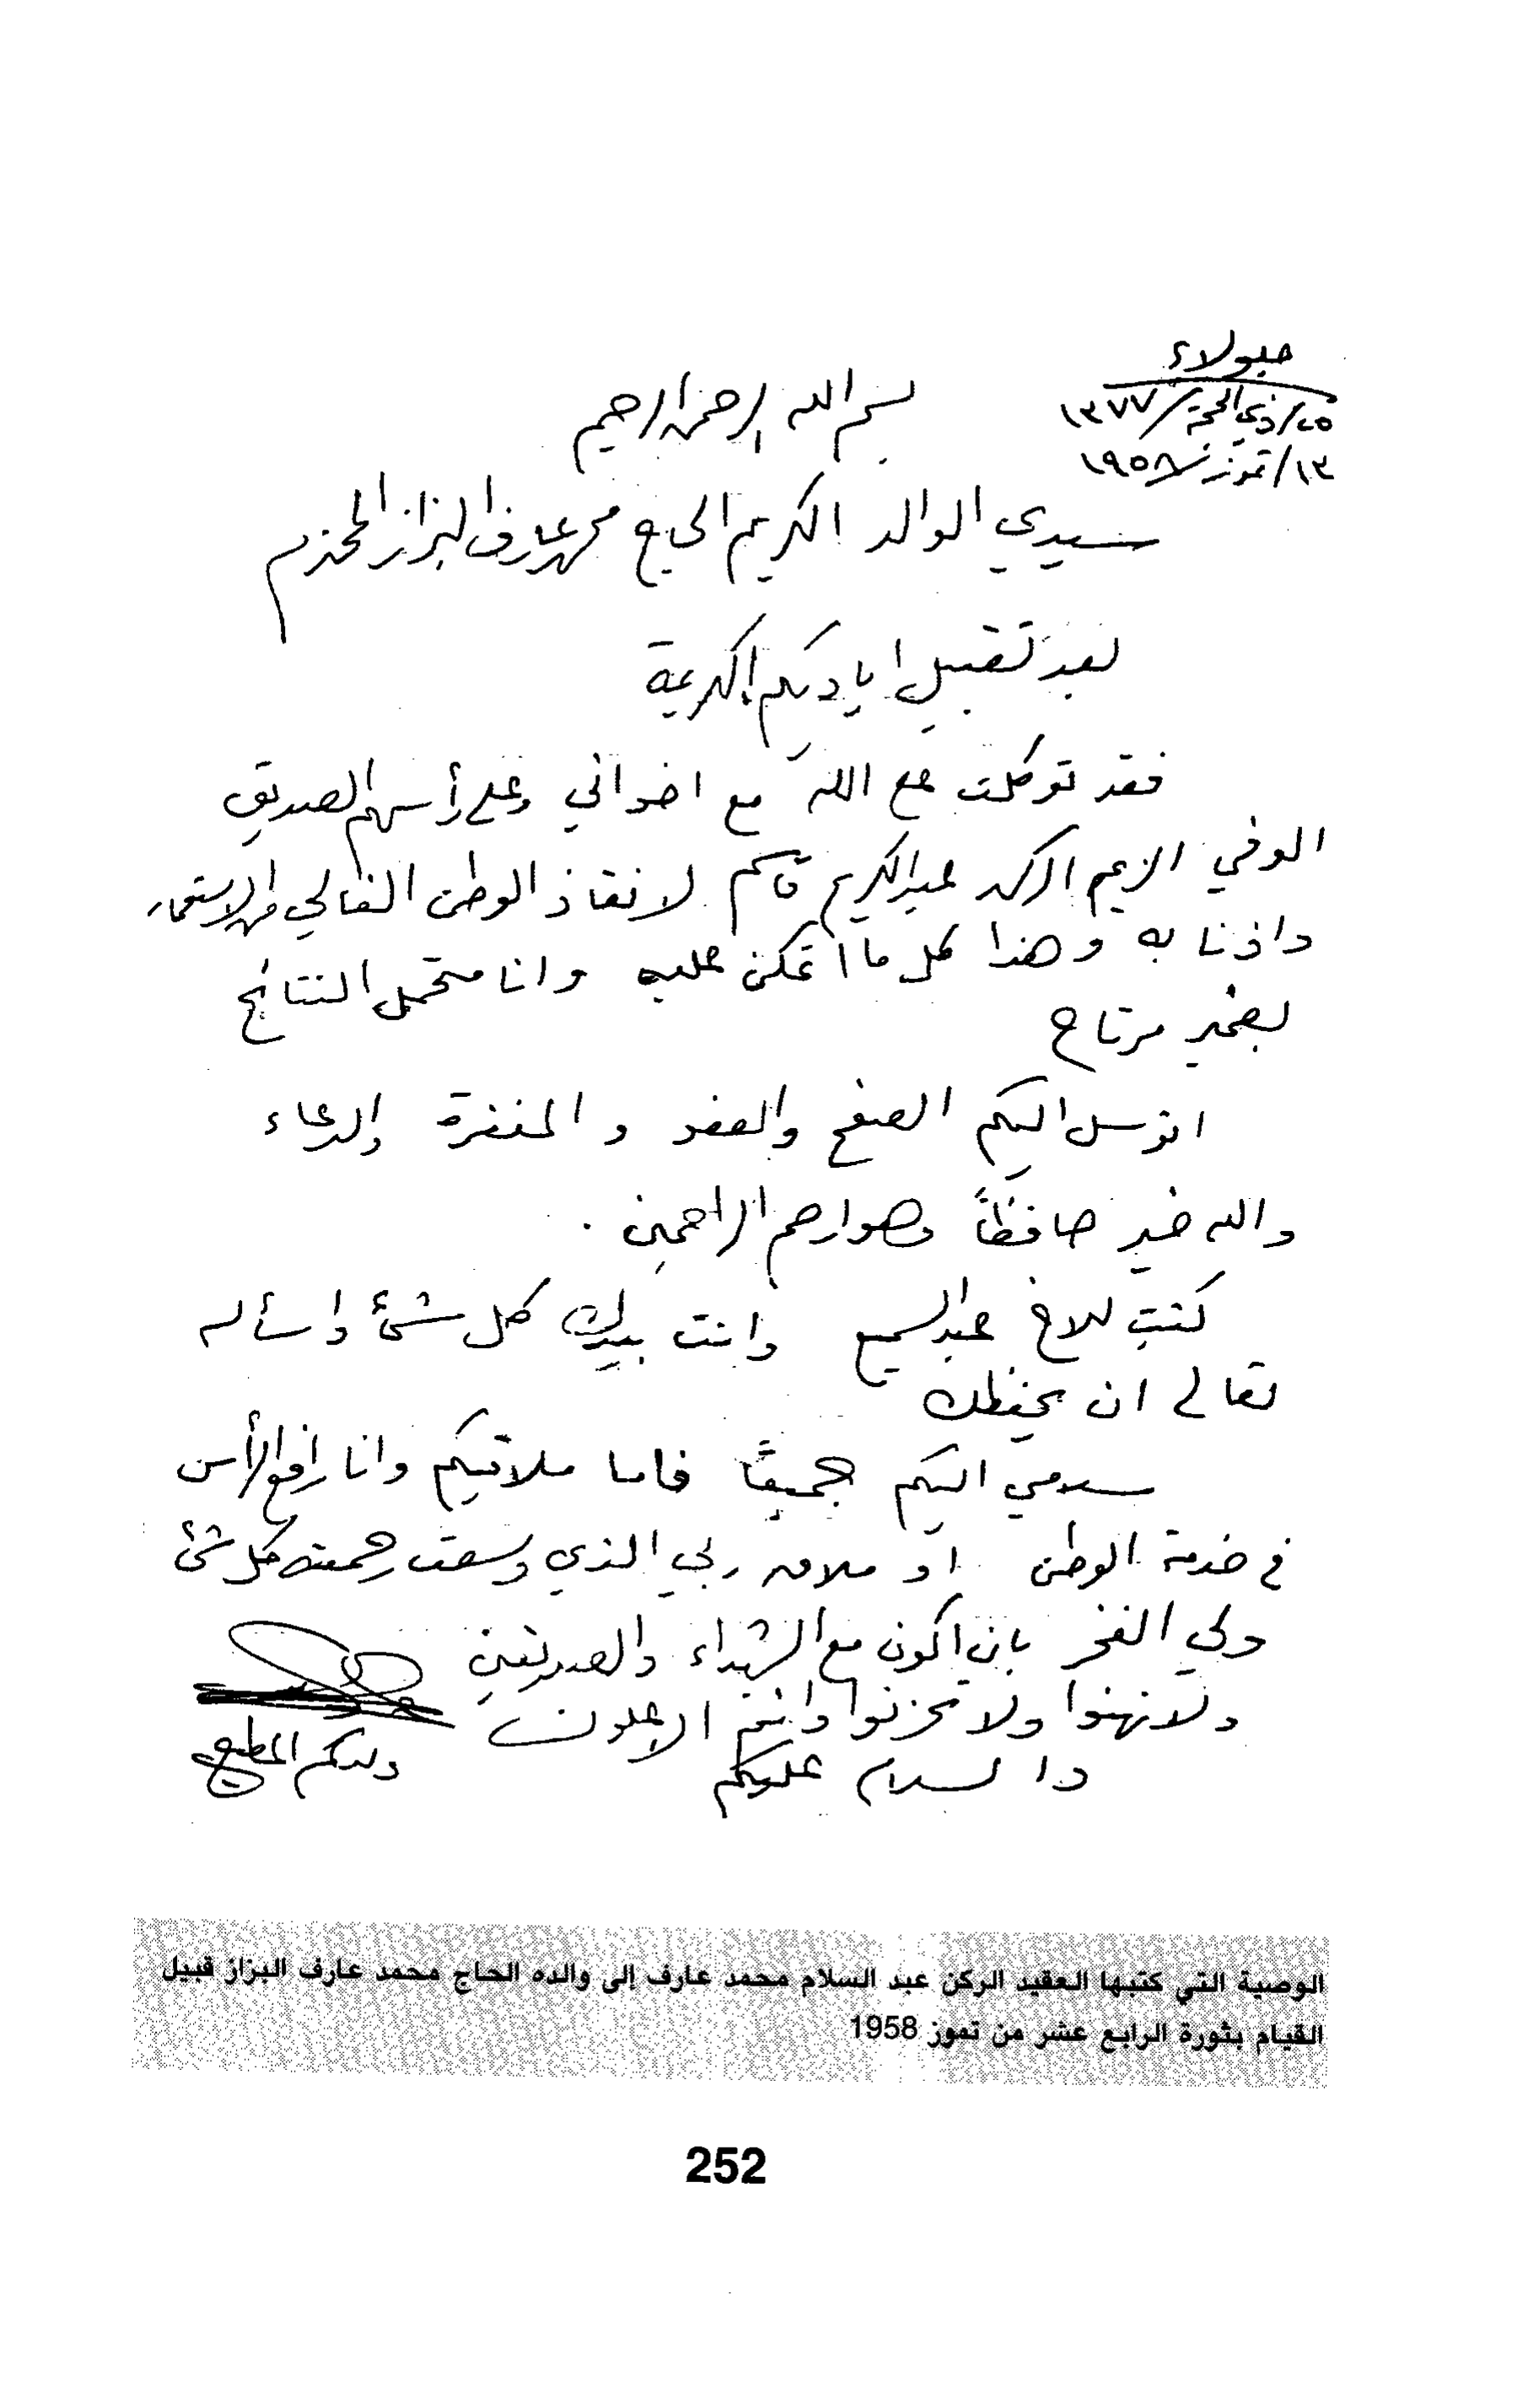 جلولاء
٢٥/ذي الحجة/١٣٧٧
١٣/تموز/١٩٥٨
بسم الله الرحمن الرحيم
سيدي الوالد الكريم الحاج محمد عارف البزاز المحترم
بعد تقبيل اياديكم الكريمة
فقد توكلت على الله مع اخواني وعلى رأسهم الصديق
الوفي الزعيم الركن عبدالكريم قاسم لانقاذ الوطن الغالي من الاستعمار
واذنابه وهذا كل ما اتمكن عليه وانا متحمل النتائج
بضمير مرتاح
اتوسل اليكم الصفح والعفو والمغفرة والدعاء
والله خير حافظاً وهو ارحم الراحمين .
كتبت للاخ عبدالسميع وانت بيدك كل شئ واسأله
تعالى ان يحفظك
سلامي اليكم جميعاً فاما ملاقيكم وانا رافع الرأس
في خدمة الوطن او ملاق ربي الذي وسعت رحمته كل شئ
ولي الفخر بان اكون مع الشهداء والصديقين
ولا تهنوا ولا تحزنوا وانتم الاعلون
والسلام عليكم
ولدكم المطيع
الوصية التي كتبها العقيد الركن عبد السلام محمد عارف إلى والده الحاج محمد عارف البزاز قبيل
القيام بثورة الرابع عشر من تموز 1958
252